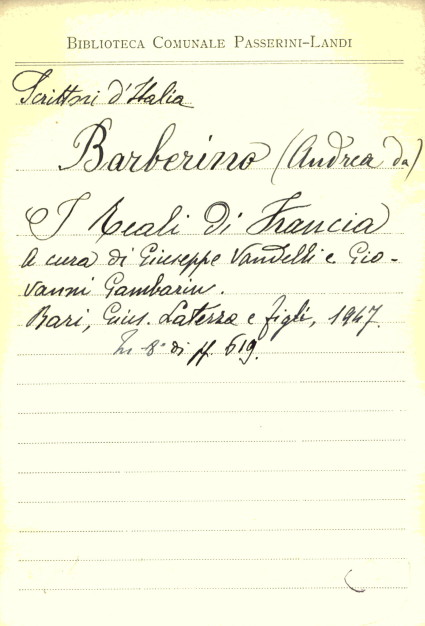 BIBLIOTECA COMUNALE PASSERINI-LANDI
Scrittori d'Italia
Barberino (Andrea da)
I Reali di Francia
A cura di Giuseppe Vandelli e Gio-
vanni Gambarin.
Bari, Gius. Laterza e figli, 1947.
In 8° di pp. 519.